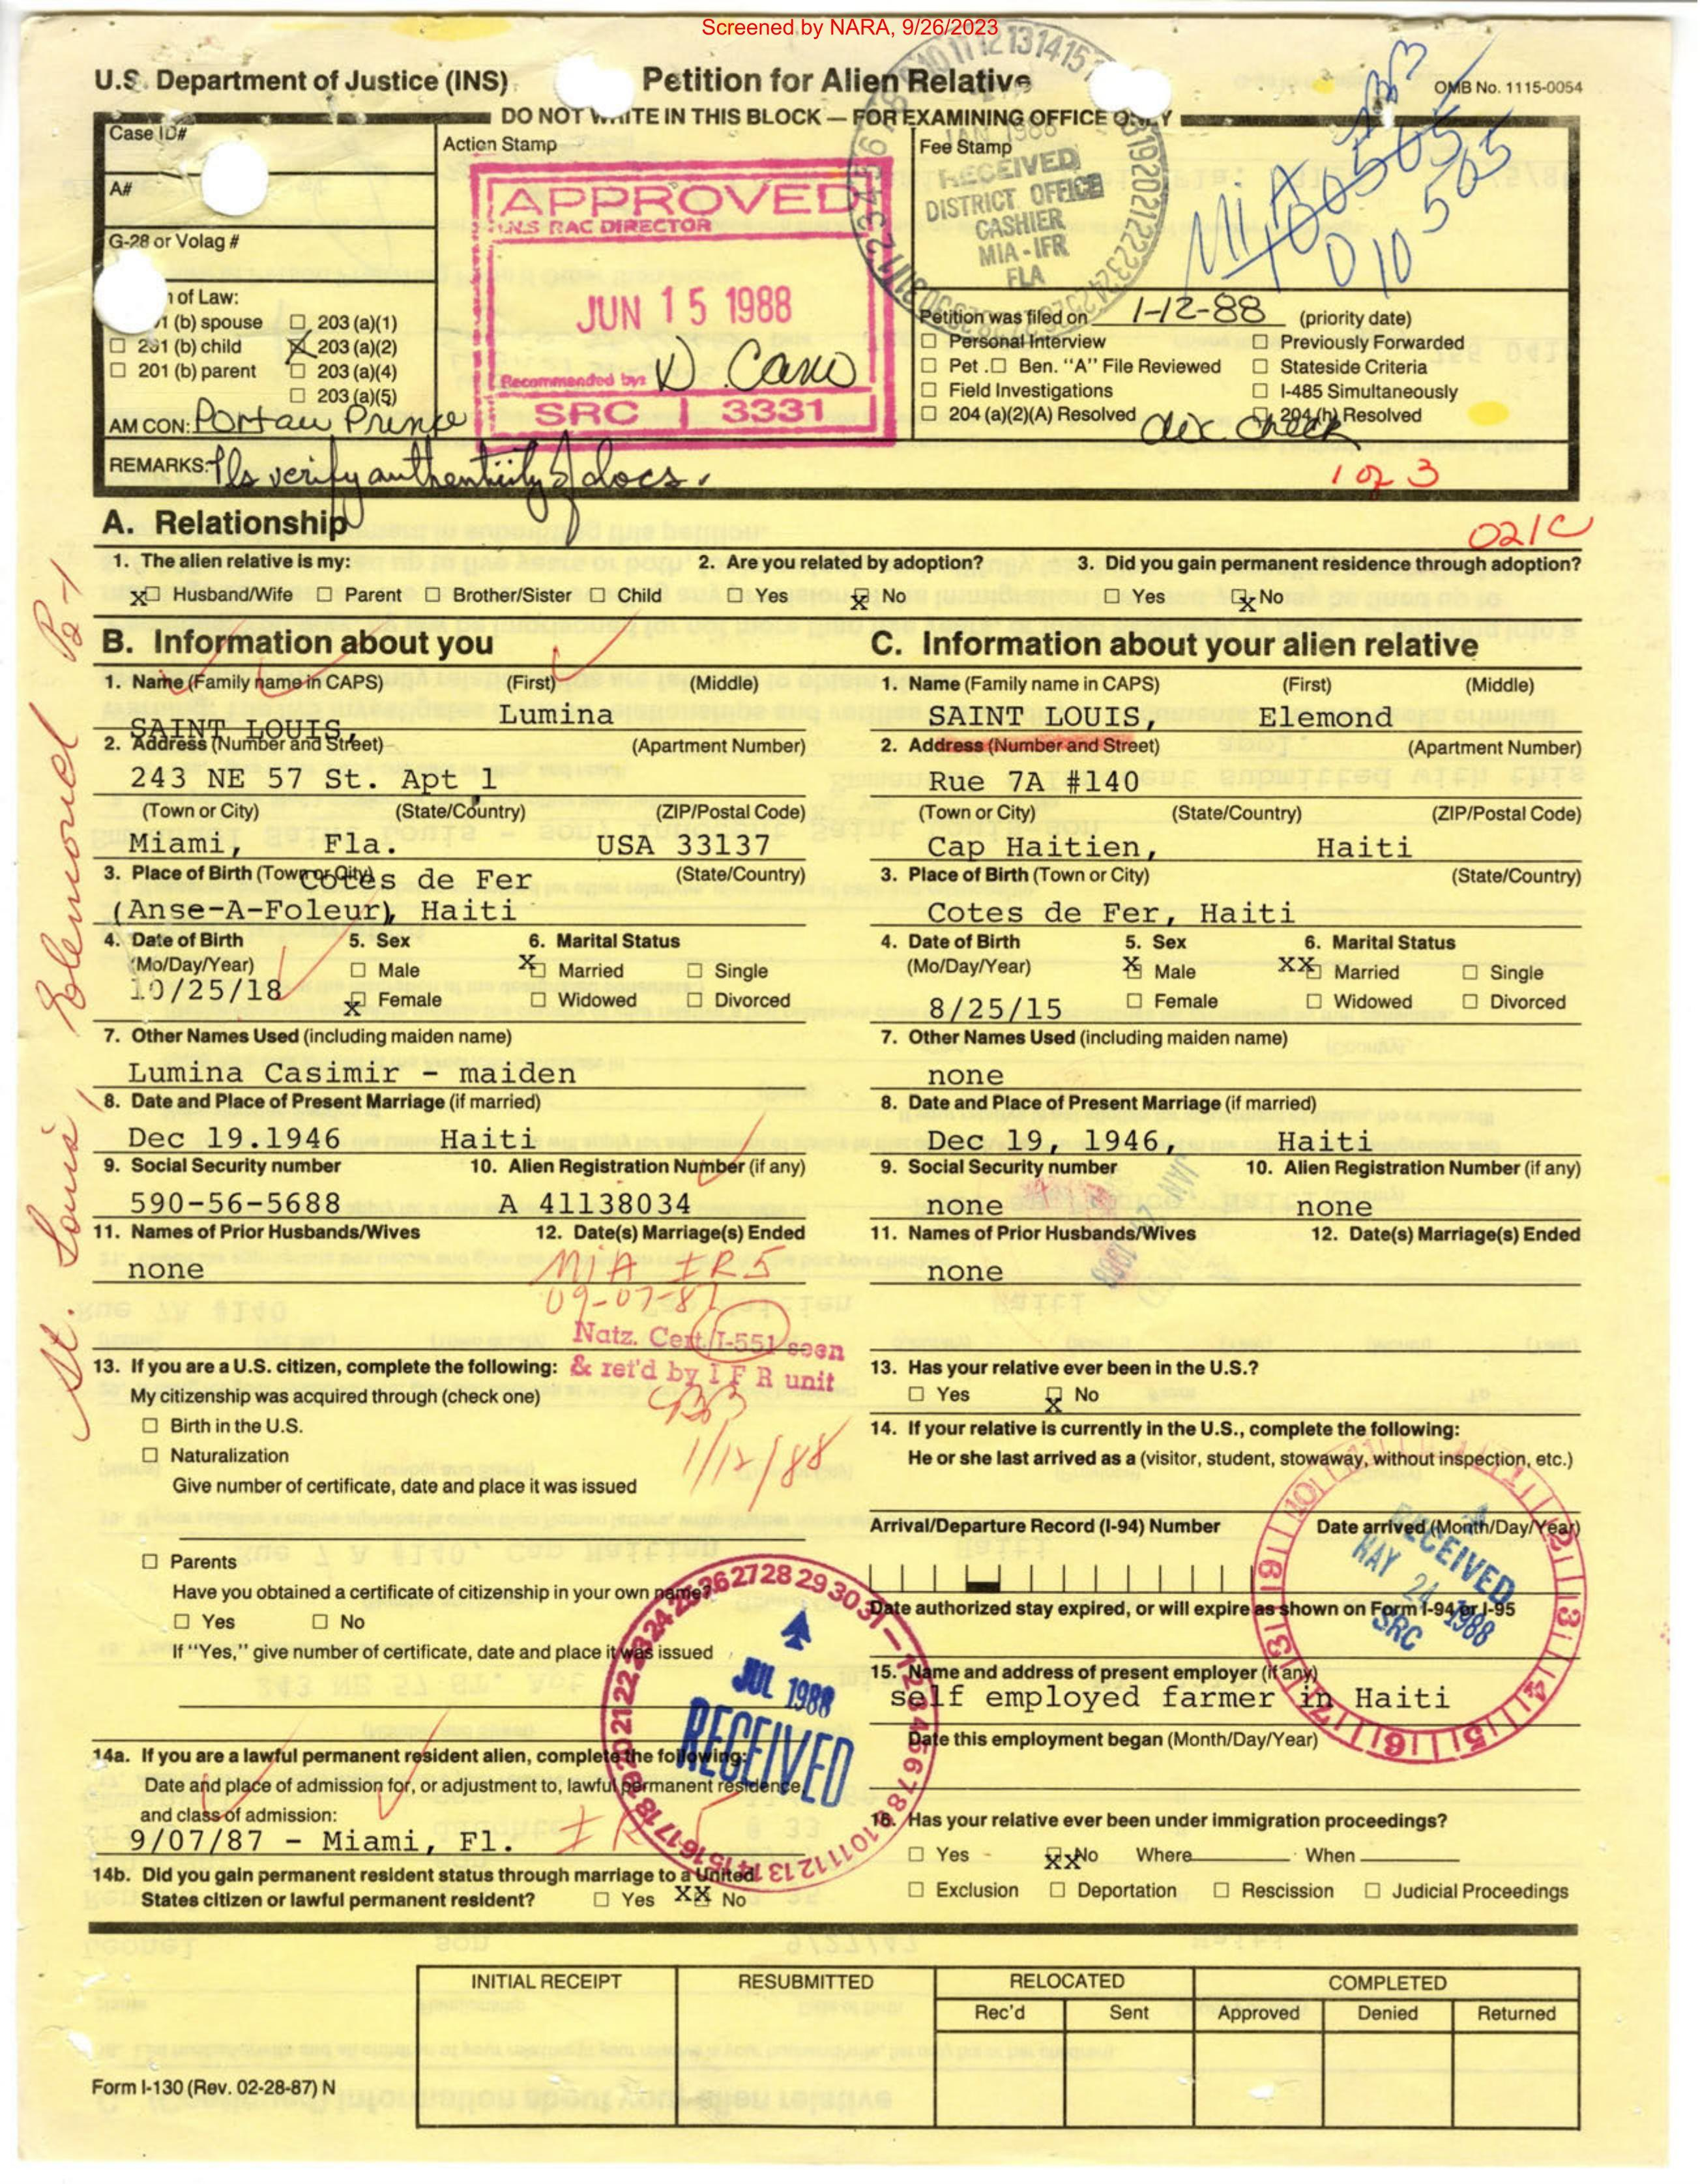 Screened by NARA, 9/26/2023
U.S. Department of Justice (INS) Petition for Alien Relative OMB No. 1115-0054
DO NOT WRITE IN THIS BLOCK — FOR EXAMINING OFFICE ONLY
Case ID#
Action Stamp
Fee Stamp
A#
G-28 or Volag #
APPROVED
INS RAC DIRECTOR
JUN 15 1988
Recommended by: D. Cano
SRC 3331
JAN 1988
RECEIVED
DISTRICT OFFICE
CASHIER
MIA - IFR
FLA
MIA
010 505
of Law:
(b) spouse ☐ 203 (a)(1)
☐ 201 (b) child ☒ 203 (a)(2)
☐ 201 (b) parent ☐ 203 (a)(4)
☐ 203 (a)(5)
AM CON: Port au Prince
Petition was filed on 1-12-88 (priority date)
☐ Personal Interview ☐ Previously Forwarded
☐ Pet. ☐ Ben. "A" File Reviewed ☐ Stateside Criteria
☐ Field Investigations ☐ I-485 Simultaneously
☐ 204 (a)(2)(A) Resolved ☐ 204 (h) Resolved
check
REMARKS: Pls verify authenticity of docs.
1 of 3
021C
St. Louis, Elemond P2-1
A. Relationship
1. The alien relative is my: 2. Are you related by adoption? 3. Did you gain permanent residence through adoption?
X☐ Husband/Wife ☐ Parent ☐ Brother/Sister ☐ Child ☐ Yes ☒ No ☐ Yes ☒ No
B. Information about you
1. Name (Family name in CAPS) (First) (Middle)
SAINT LOUIS, Lumina
2. Address (Number and Street) (Apartment Number)
243 NE 57 St. Apt 1
(Town or City) (State/Country) (ZIP/Postal Code)
Miami, Fla. USA 33137
3. Place of Birth (Town or City) (State/Country)
Cotes de Fer
(Anse-A-Foleur), Haiti
4. Date of Birth 5. Sex 6. Marital Status
(Mo/Day/Year) ☐ Male X☐ Married ☐ Single
10/25/18 ☒ Female ☐ Widowed ☐ Divorced
7. Other Names Used (including maiden name)
Lumina Casimir - maiden
8. Date and Place of Present Marriage (if married)
Dec 19.1946 Haiti
9. Social Security number 10. Alien Registration Number (if any)
590-56-5688 A 41138034
11. Names of Prior Husbands/Wives 12. Date(s) Marriage(s) Ended
none
MIA IR5
09-07-87
Natz. Cert/I-551 seen
& ret'd by I F R unit
1/12/88
13. If you are a U.S. citizen, complete the following:
My citizenship was acquired through (check one)
☐ Birth in the U.S.
☐ Naturalization
Give number of certificate, date and place it was issued
☐ Parents
Have you obtained a certificate of citizenship in your own name?
☐ Yes ☐ No
If "Yes," give number of certificate, date and place it was issued
JUL 1988
RECEIVED
14a. If you are a lawful permanent resident alien, complete the following:
Date and place of admission for, or adjustment to, lawful permanent residence,
and class of admission:
9/07/87 - Miami, Fl. IR5
14b. Did you gain permanent resident status through marriage to a United
States citizen or lawful permanent resident? ☐ Yes XX☐ No
C. Information about your alien relative
1. Name (Family name in CAPS) (First) (Middle)
SAINT LOUIS, Elemond
2. Address (Number and Street) (Apartment Number)
Rue 7A #140
(Town or City) (State/Country) (ZIP/Postal Code)
Cap Haitien, Haiti
3. Place of Birth (Town or City) (State/Country)
Cotes de Fer, Haiti
4. Date of Birth 5. Sex 6. Marital Status
(Mo/Day/Year) ☒ Male XX☐ Married ☐ Single
8/25/15 ☐ Female ☐ Widowed ☐ Divorced
7. Other Names Used (including maiden name)
none
8. Date and Place of Present Marriage (if married)
Dec 19, 1946, Haiti
9. Social Security number 10. Alien Registration Number (if any)
none none
11. Names of Prior Husbands/Wives 12. Date(s) Marriage(s) Ended
none
13. Has your relative ever been in the U.S.?
☐ Yes ☒ No
14. If your relative is currently in the U.S., complete the following:
He or she last arrived as a (visitor, student, stowaway, without inspection, etc.)
Arrival/Departure Record (I-94) Number Date arrived (Month/Day/Year)
RECEIVED
MAY 24 1988
SRC
Date authorized stay expired, or will expire as shown on Form I-94 or I-95
15. Name and address of present employer (if any)
self employed farmer in Haiti
Date this employment began (Month/Day/Year)
16. Has your relative ever been under immigration proceedings?
☐ Yes ☒ No Where When
☐ Exclusion ☐ Deportation ☐ Rescission ☐ Judicial Proceedings
INITIAL RECEIPT RESUBMITTED RELOCATED COMPLETED
Rec'd Sent Approved Denied Returned
Form I-130 (Rev. 02-28-87) N